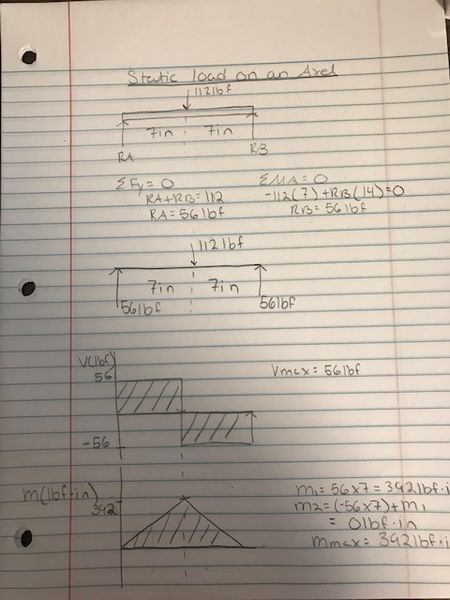 Static load on an Axel
112lbf
7in 7in
RA RB
ΣFy = 0 ΣMA = 0
RA+RB = 112 -112(7)+RB(14)=0
RA = 56lbf RB = 56lbf
112lbf
7in 7in
56lbf 56lbf
V(lbf)
56
Vmax = 56lbf
-56
m(lbf·in)
392
m1 = 56x7 = 392lbf·i
m2 = (-56x7)+m1
= 0lbf·in
mmax = 392lbf·i